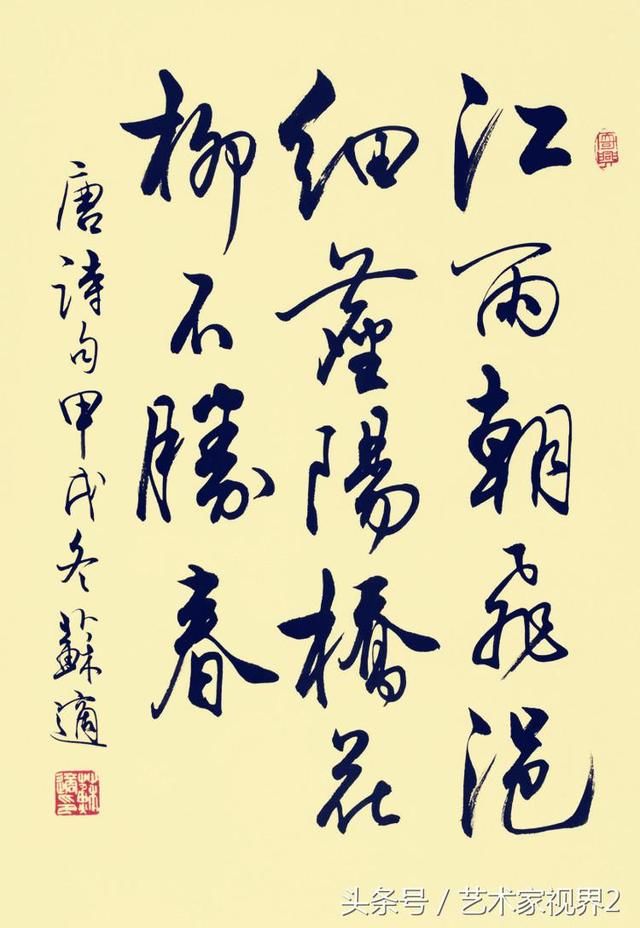 江雨朝飛浥
細塵陽橋花
柳不勝春
唐詩句甲戌冬蘇適
头条号 / 艺术家视界2